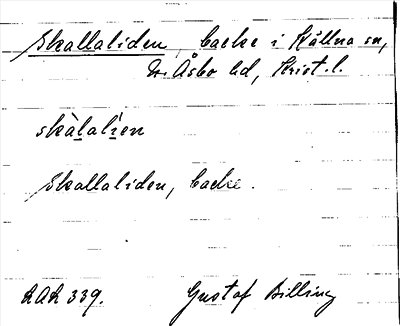 Skallaliden, backe i Källna sn,
N. Åsbo hd, Krist. l.
skàlalíen
Skallaliden, backe.
RAÄ 339. Gustaf Billing